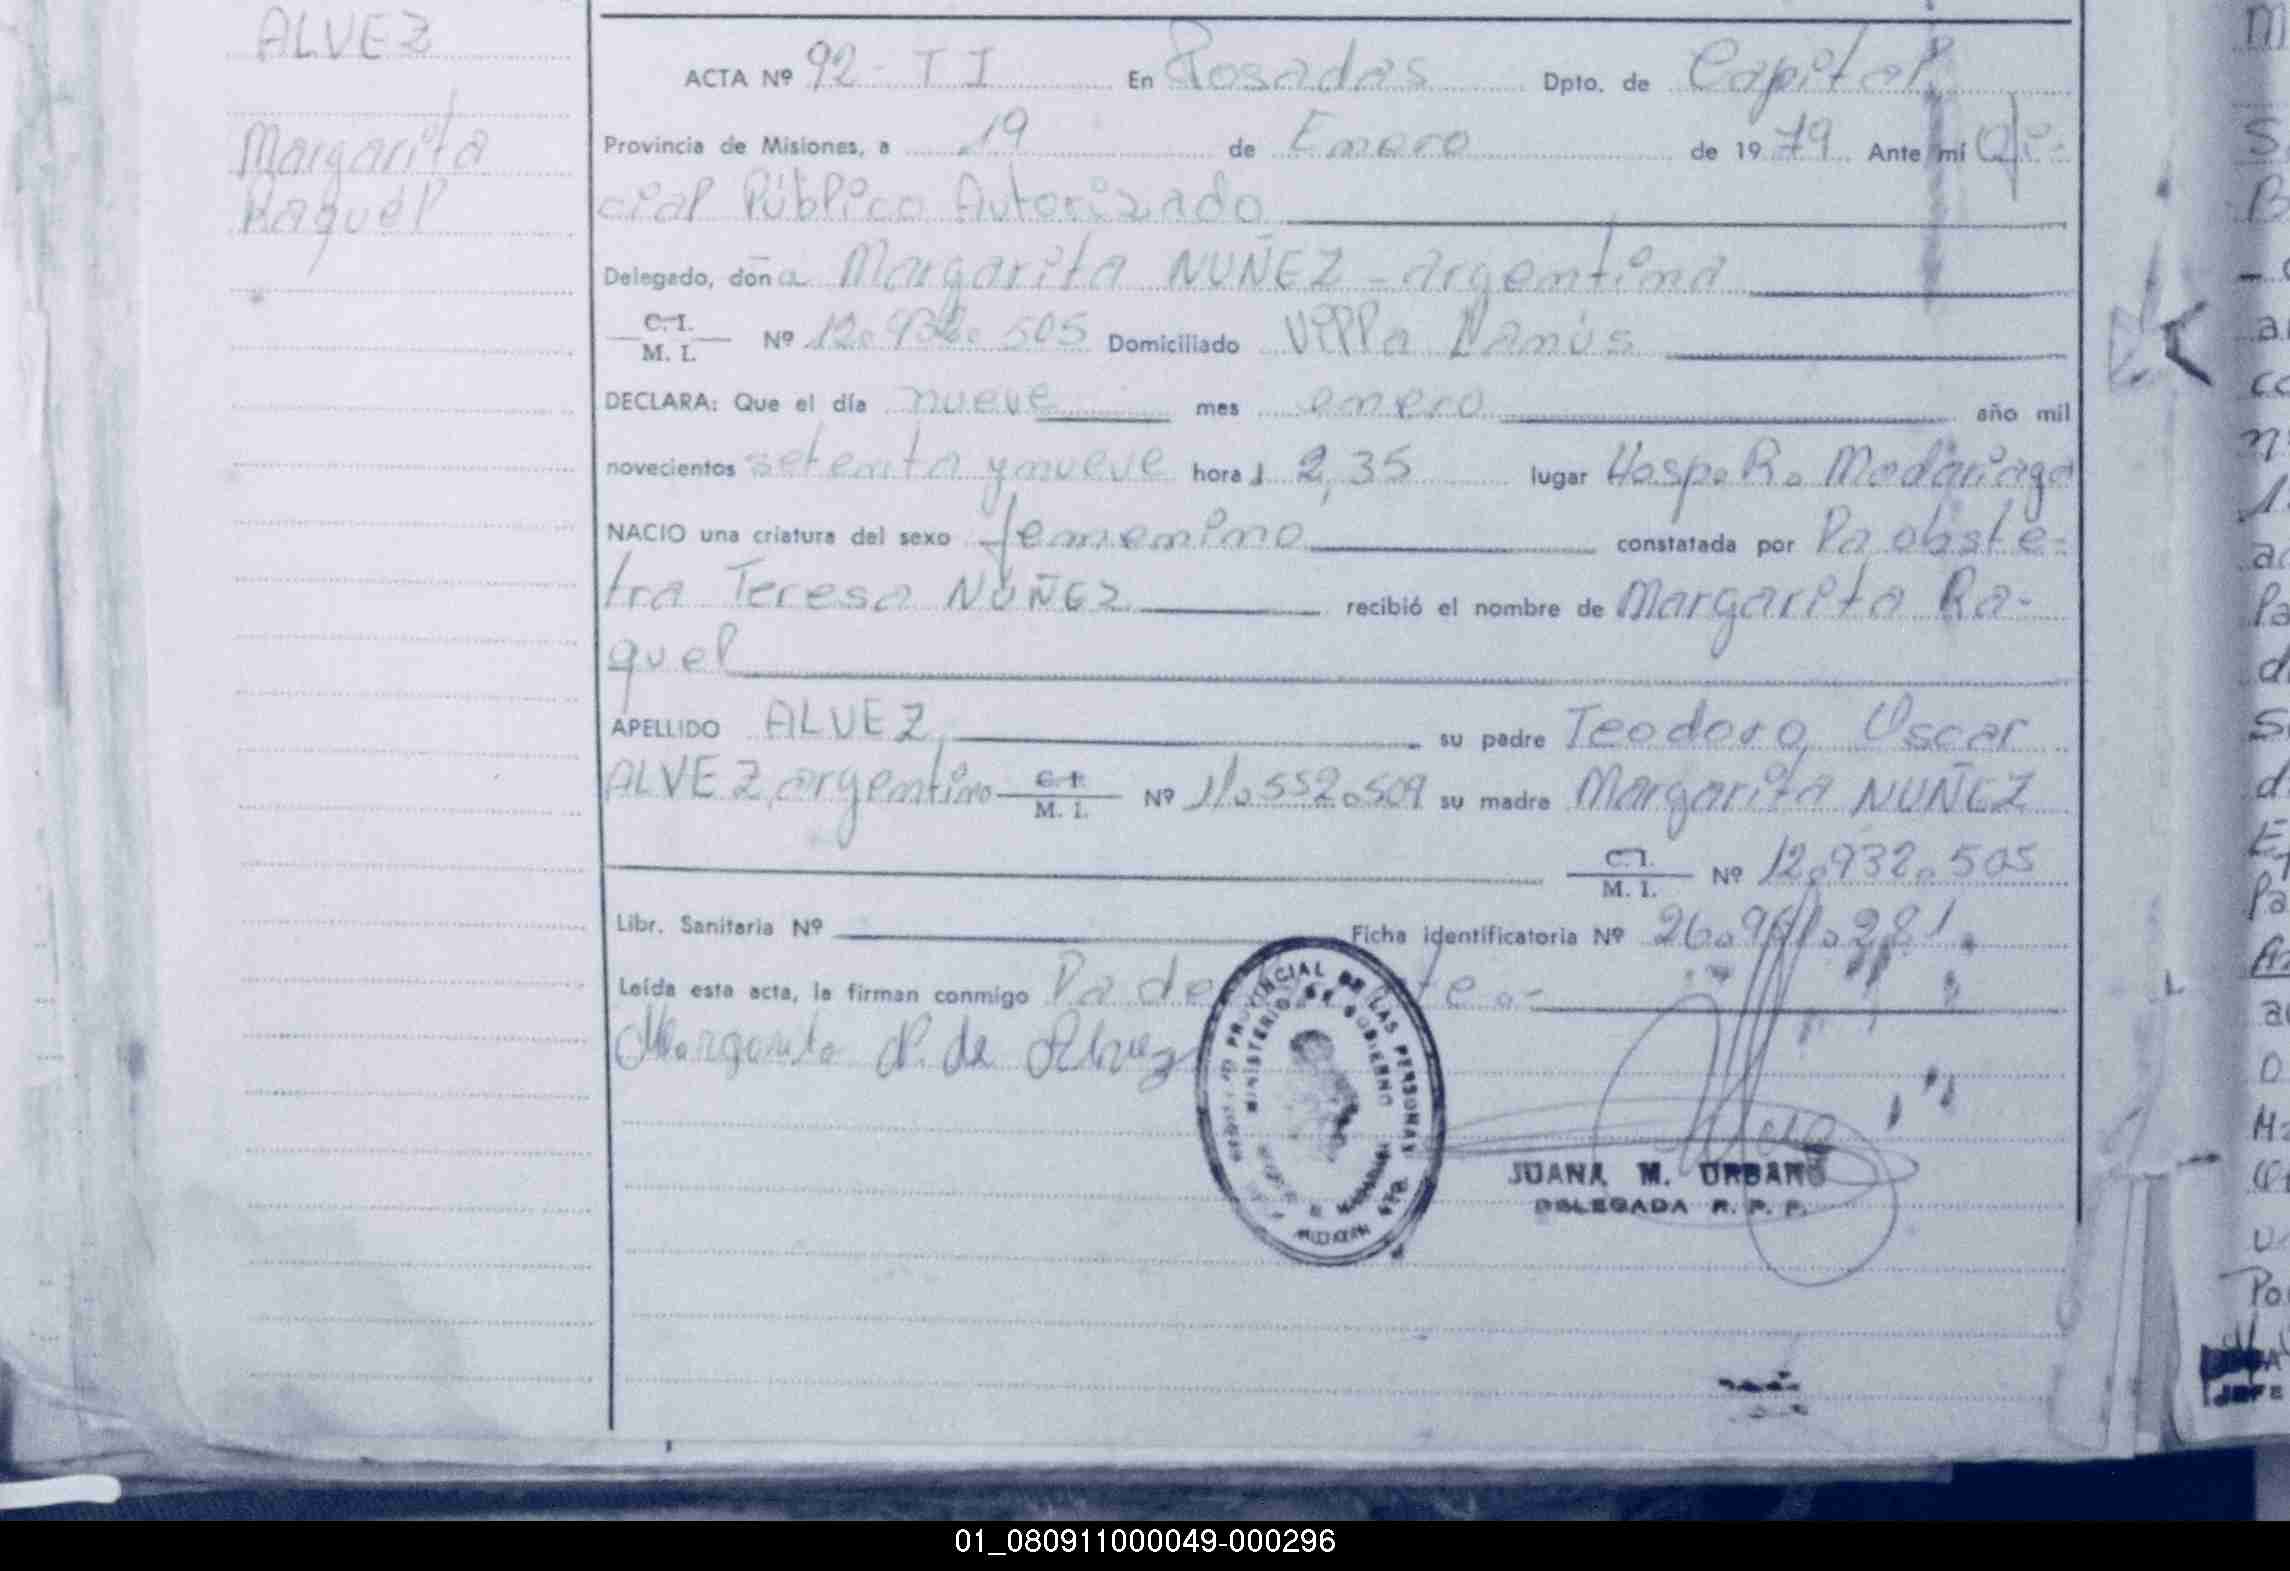 ALVEZ
Margarita
Raquel
ACTA Nº 92-TI En Posadas Dpto. de Capital
Provincia de Misiones, a 19 de Enero de 1979 Ante mi Ofi-
cial Público Autorizado
Delegado, doña Margarita NUÑEZ - argentina
C. I.
M. I. Nº 12.932.505 Domiciliado Villa Lanús
DECLARA: Que el día nueve mes enero año mil
novecientos setenta y nueve hora 12,35 lugar Hosp. R. Madariaga
NACIO una criatura del sexo femenino constatada por la obste-
tra Teresa NUÑEZ recibió el nombre de Margarita Ra-
quel
APELLIDO ALVEZ su padre Teodoro Oscar
ALVEZ, argentino C. I. M. I. Nº 11.552.509 su madre Margarita NUÑEZ
C. I.
M. I. Nº 12.932.505
Libr. Sanitaria Nº Ficha identificatoria Nº 26.961.281.
Leída esta acta, la firman conmigo
Margarita N. de Alvez
PROVINCIAL DE LAS PERSONAS
MINISTERIO DE GOBIERNO
JUANA M. URBANO
DELEGADA R. P. P.
JEFE
01_080911000049-000296